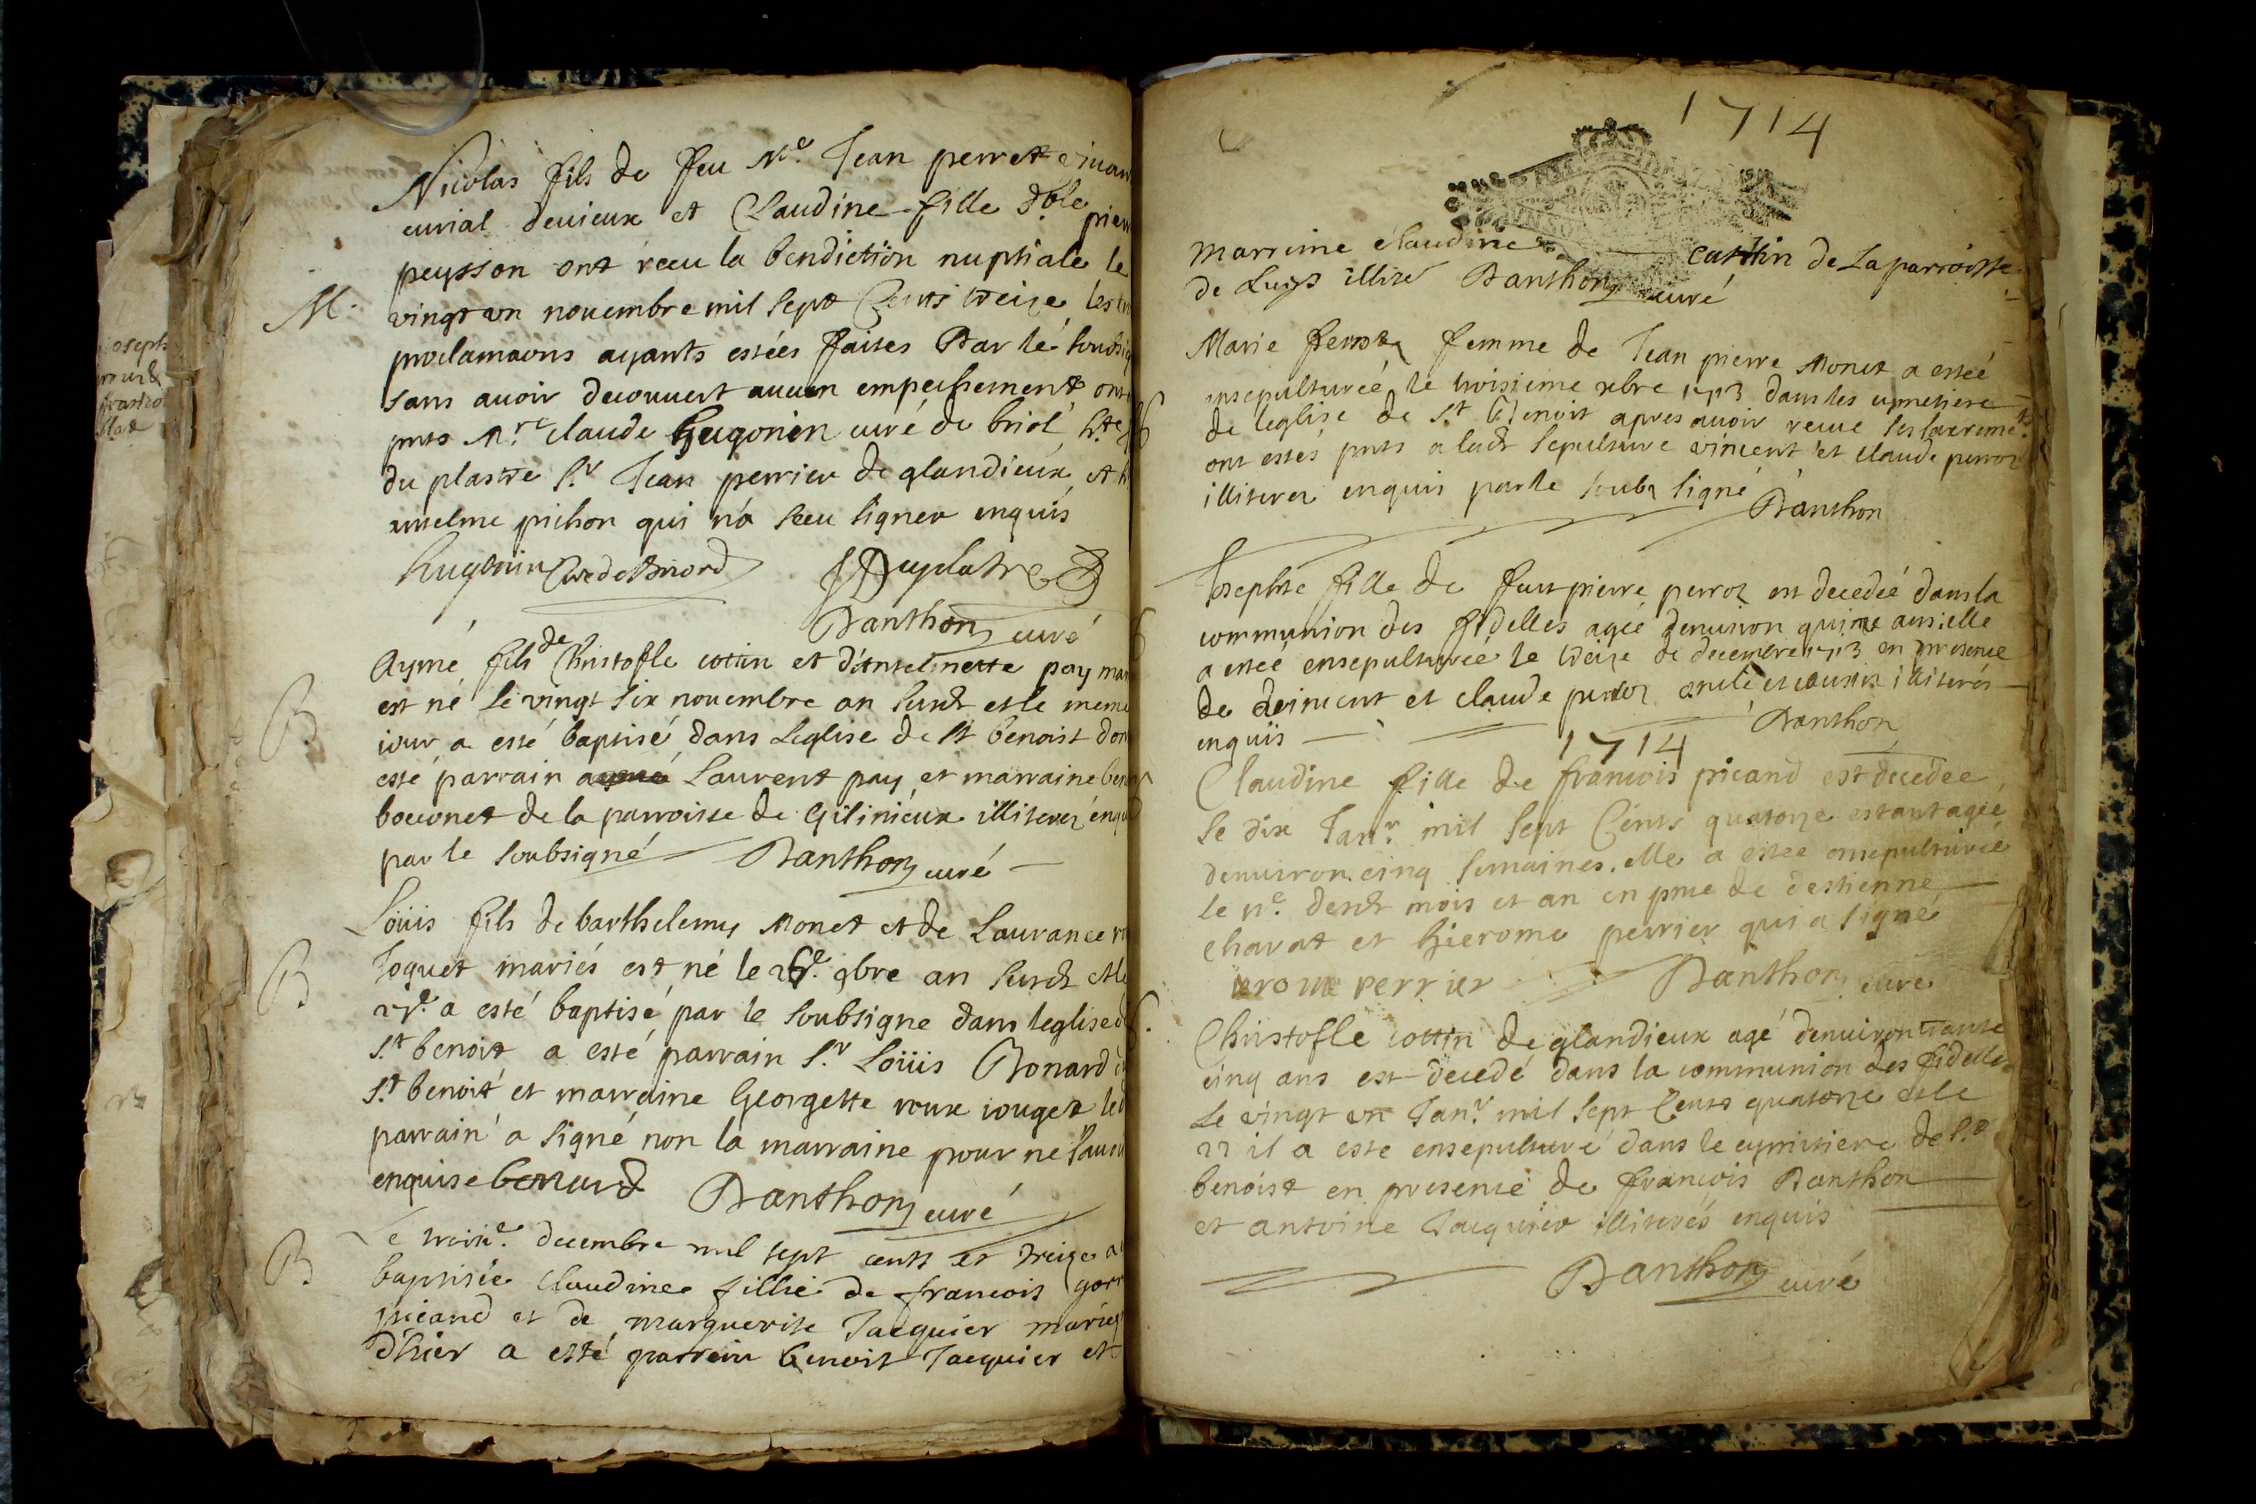 Nicolas fils de feu Mre. Jean perret
curial deuieux et Claudine fille
peysson ont receu la benediction nuptiale le
M. vingt un nouembre mil sept Cents treize les
proclamaons ayants estées faites Par le
sans auoir decouuert aucun empechement ont
pnts Mre. claude hugonin curé de briol
du plastre Sr. Jean perrier de glandieux et
antelme pichon qui n'a sceu signer enquis
hugonin Curé de Briord JDuplatre
Danthon curé
Aymé fils de Christofle cottin et d'antelmette pay
B est né le vingt six nouembre an susdt et le meme
iour a esté baptisé dans Leglise de st benoist
esté parrain Laurent pay et marraine
bouuonet de la parroisse de Gilinieux illiterez
par le soubsigné Danthon curé
Loüis fils de barthelemy Monet et de Laurance
B Joguet mariés est né le 9bre an susdt et le
27e. a esté baptisé par le soubsigne dans leglise
St. benoit a esté parrain Sr. Loüis Bonard
St benoit et marraine Georgette roux iouget
parrain a signé non la marraine pour ne
enquise bonard Danthon curé
B Le troise. decembre mil sept cents et treize a
baptisée Claudine fillie de francois
picand et de marguerite Jacquier mariés
d'hier a esté parrein benoit Jacquier et
1714
marreine claudine cottin de La parroisse
de Luys illité Danthon curé
Marie femme de Jean pierre Monet a esteé
ensepultureé le troisieme xbre 1713 dans les cymetiere
de leglise de St Benoit apres auoir receue les sacremts.
ont estés pnts a ladt sepulture vincent et claude perroz
illiterez enquis par le soubz signé Danthon
Josephte fille de feu pierre perroz est decedeé dans la
communion des fidelles ageé denuiron quinze ans elle
a esteé ensepultureé le treize de decembre 1713 en presence
de vincent et claude perroz oncle et cousin illiterés
enquis Danthon
1714
Claudine fille de francois picand est decedee
le dix Janr. mil sept Cents quatorze estant ageé
denuiron cinq semaines. elle a estee ensepultureé
le 11e. desdt mois et an en pnce de destienne
charat et hierome perrier qui a signé
ierome perrier Danthon curé
Christofle cottin de glandieux agé denuiron trante
cinq ans est decedé dans la communion des fidelles
Le vingt un Janr. mil sept Cents quatorze et le
22 il a este ensepulturé dans le cymitiere de St
benoist en presence de francois Danthon
et antoine Jacquier illiterés enquis
Danthon curé